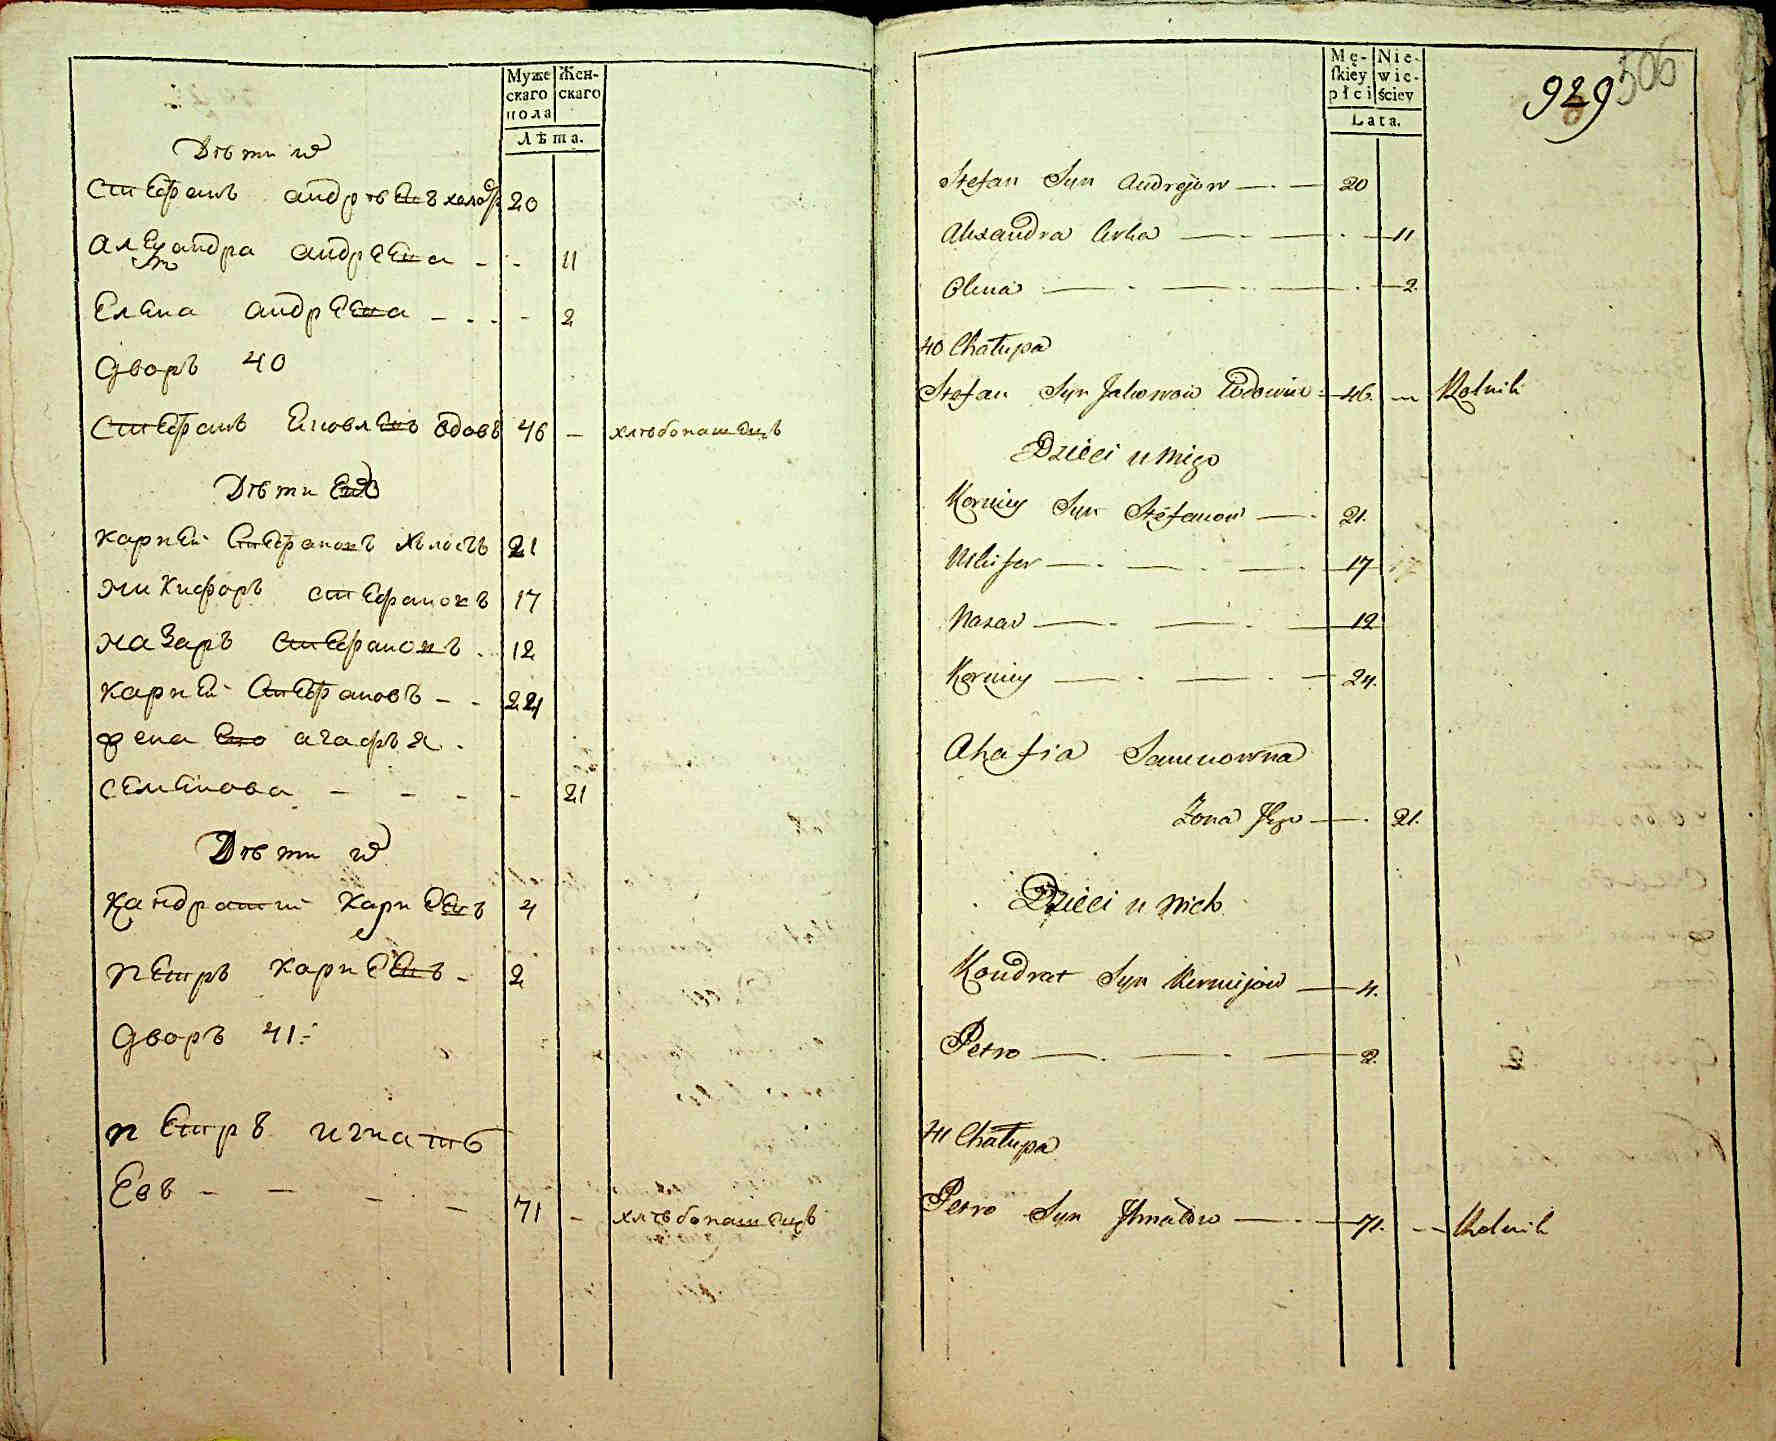 Муже
скаго
пола
Жен-
скаго
Лѣта.
Дѣти их
Стефанъ андрѣевъ холос 20
Александра андреева - - 11
Елена андреева - - - - 2
Дворъ 40
Стефанъ Яковлевъ вдовъ 46 - хлѣбопашецъ
Дѣти его
карней Стефановъ холостъ 21
микифоръ стефановъ 17
назаръ Стефановъ . 12
карней Стефановъ - - 24
жена его агафья .
семенова - - - - 21
Дѣти их
Кандратий карнеевъ 4
петръ карнеевъ - 2
Дворъ 41
петръ игнать
евъ - - - - 71 - хлѣбопашецъ
Mę-
skiey
płci
Nie-
wie-
ściey
Lata.
929 306
Stefan Syn Andrejow — 20
Alexandra Corka — 11
Olena — 2
40 Chałupa
Stefan Syn Jakowow Wdowiec 46. — Rolnik
Dzieci u niego
Korniey Syn Stefanow — 21.
Nikifor — 17
Nazar — 12
Korniey — 24.
Ahafia Semenowna
Żona Jego — 21.
Dzieci u nich
Kondrat Syn Korniejow — 4.
Petro — 2.
41 Chałupa
Petro Syn Ihnatow — 71. — Rolnik